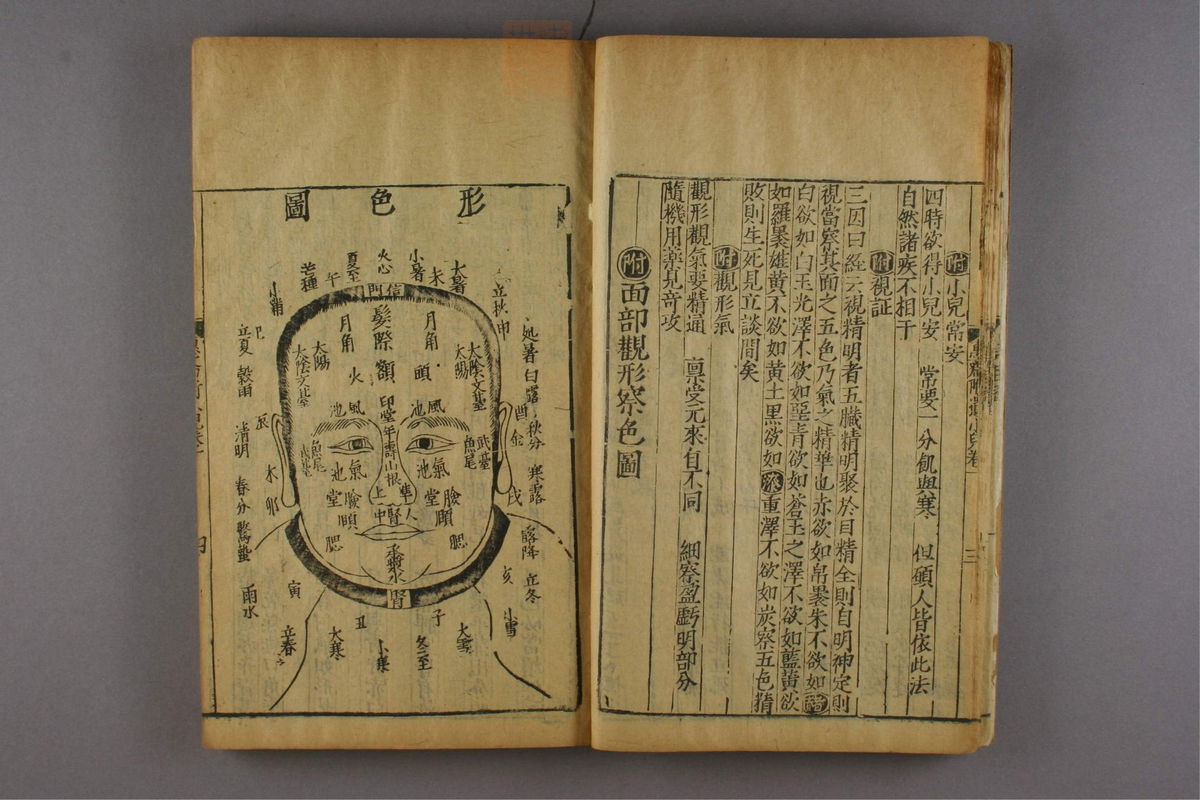 附小兒常安
四時欲得小兒安 常要一分飢與寒 但願人皆依此法
自然諸疾不相干
附視証
三因曰經云視精明者五臟精明聚於目精全則目明神定則
視當察其面之五色乃氣之精華也赤欲如帛裹朱不欲如
白欲如白玉光澤不欲如堊青欲如蒼玉之澤不欲如藍黃欲
如羅裹雄黃不欲如黃土黑欲如漆重澤不欲如炭察五色精
敗則生死見立談間矣
附觀形氣
觀形觀氣要精通 禀受元來自不同 細察盈虧明部分
隨機用藥見奇攻
附面部觀形察色圖
形色圖
立秋 申
大暑
未
小暑
火心
夏至
午
芒種
小滿
巳
立夏 穀雨
辰
清明
木卯
春分 驚蟄
雨水
寅
立春
丑
大寒
小寒
冬至
子
大雪
小雪
亥
霜降 立冬
戌
處暑 白露 秋分 寒露
酉金
信門
髮際 額
月角
月角
頭
火
太陽
太陰文臺
太陽
太陰文臺
印堂 年壽 山根
風池
風池
武臺
魚尾
魚尾
武臺
氣池
氣池
準上
人中
臉頤
堂
臉頤
堂
腮
腮
腎
承漿水
腎